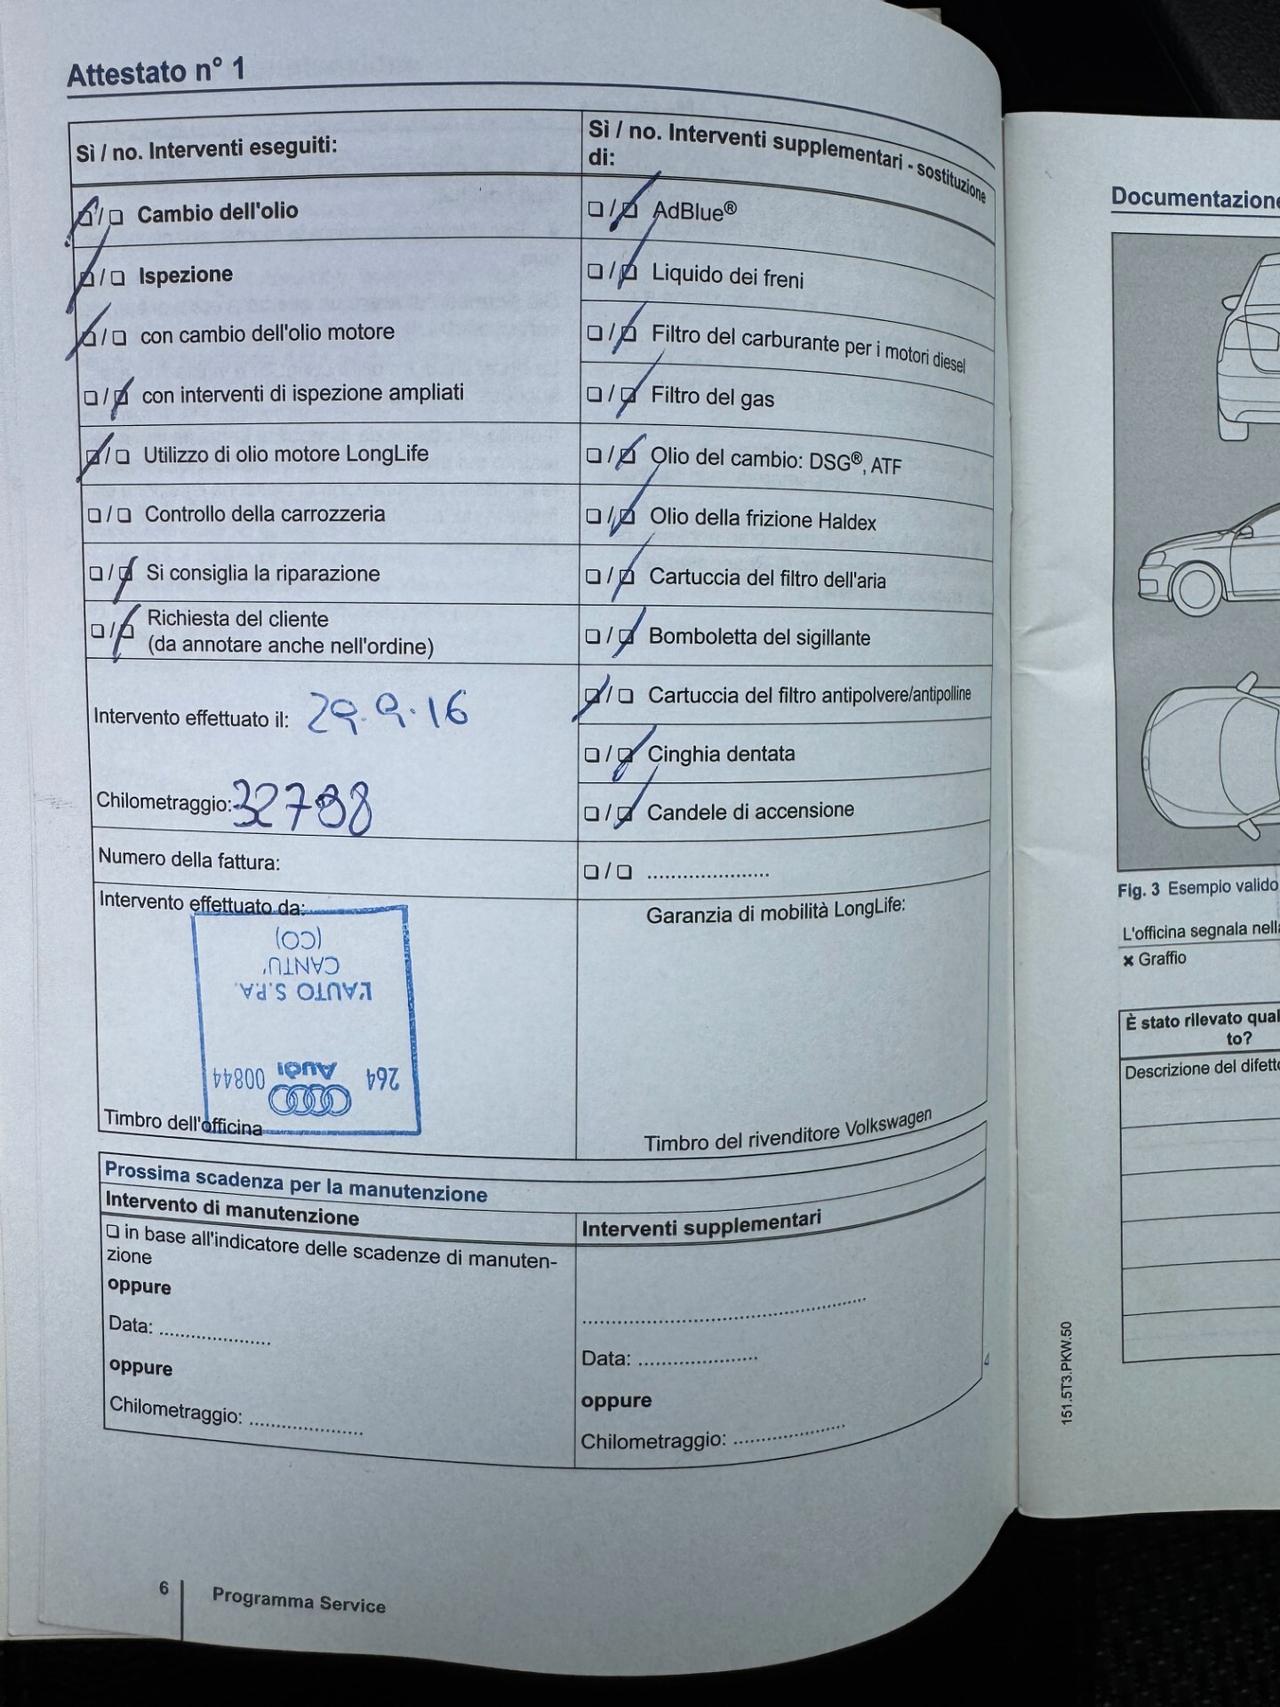 Attestato n° 1
Sì / no. Interventi eseguiti:
Cambio dell'olio
Ispezione
con cambio dell'olio motore
con interventi di ispezione ampliati
Utilizzo di olio motore LongLife
Controllo della carrozzeria
Si consiglia la riparazione
Richiesta del cliente
(da annotare anche nell'ordine)
Intervento effettuato il: 29.9.16
Chilometraggio: 32788
Numero della fattura:
Intervento effettuato da:
264 Audi 00844
L'AUTO S.P.A.
CANTU'
(CO)
Timbro dell'officina
Sì / no. Interventi supplementari - sostituzione
di:
AdBlue®
Liquido dei freni
Filtro del carburante per i motori diesel
Filtro del gas
Olio del cambio: DSG®, ATF
Olio della frizione Haldex
Cartuccia del filtro dell'aria
Bomboletta del sigillante
Cartuccia del filtro antipolvere/antipolline
Cinghia dentata
Candele di accensione
....................
Garanzia di mobilità LongLife:
Timbro del rivenditore Volkswagen
Prossima scadenza per la manutenzione
Intervento di manutenzione
in base all'indicatore delle scadenze di manuten-
zione
oppure
Data: ....................
oppure
Chilometraggio: ....................
Interventi supplementari
Data: ....................
oppure
Chilometraggio: ....................
6 Programma Service
Documentazione
Fig. 3 Esempio valido
L'officina segnala nella
× Graffio
È stato rilevato qual
to?
Descrizione del difetto
151.5T3.PKW.50